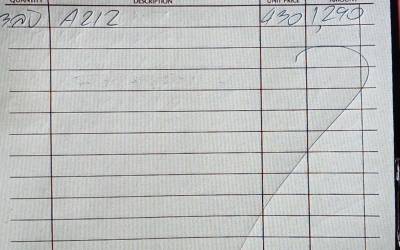 QUANTITY DESCRIPTION UNIT PRICE AMOUNT
3 A212 430 1,290